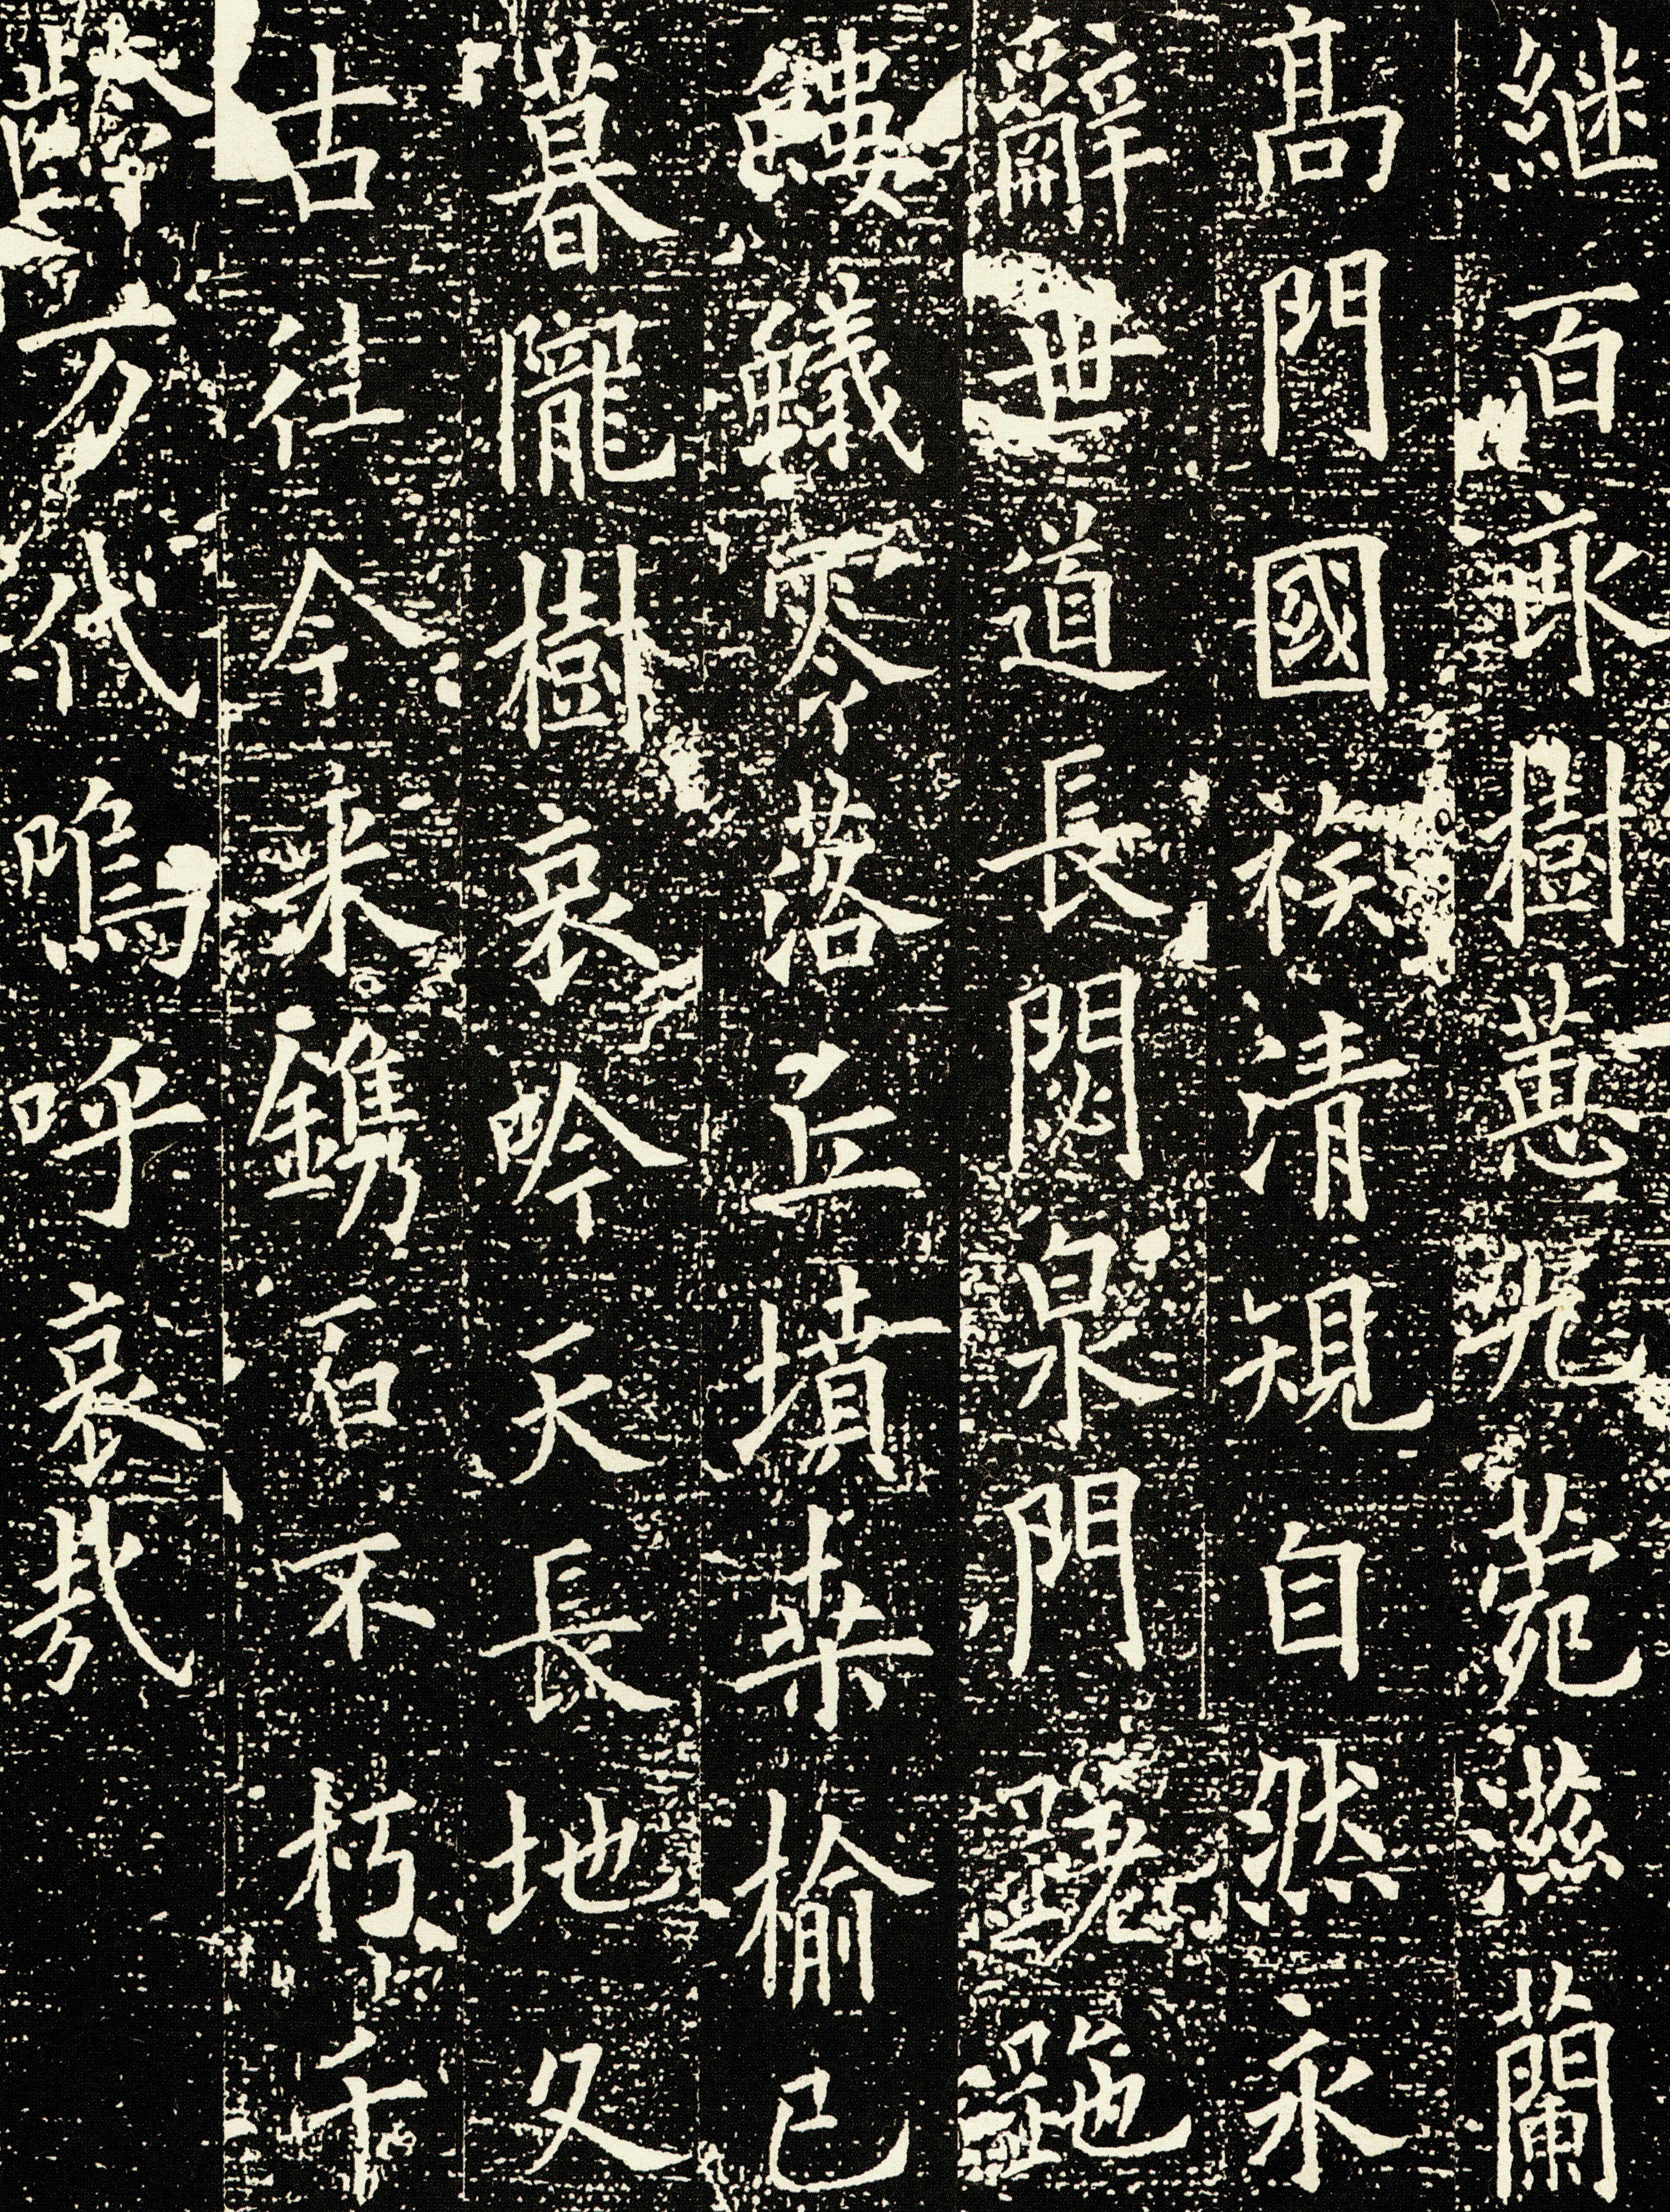 継百畆樹蕙九菀滋蘭
高門國袟清規自然永
辭世道長閟泉門蹺跎
螻蟻零落丘墳桒榆已
暮隴樹哀吟天長地久
古往今来鐫石不朽千
齡万代嗚呼哀哉